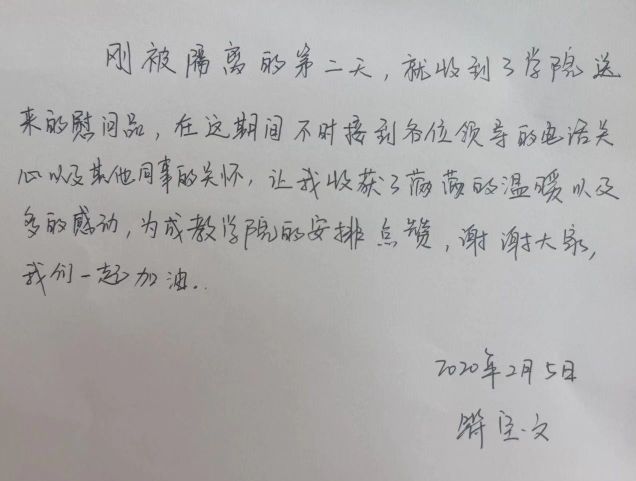 刚被隔离的第二天，就收到了学院送
来的慰问品，在这期间不时接到各位领导的电话关
心以及其他同事的关怀，让我收获了满满的温暖以及
多的感动，为成教学院的安排点赞，谢谢大家，
我们一起加油..
2020年2月5日
文